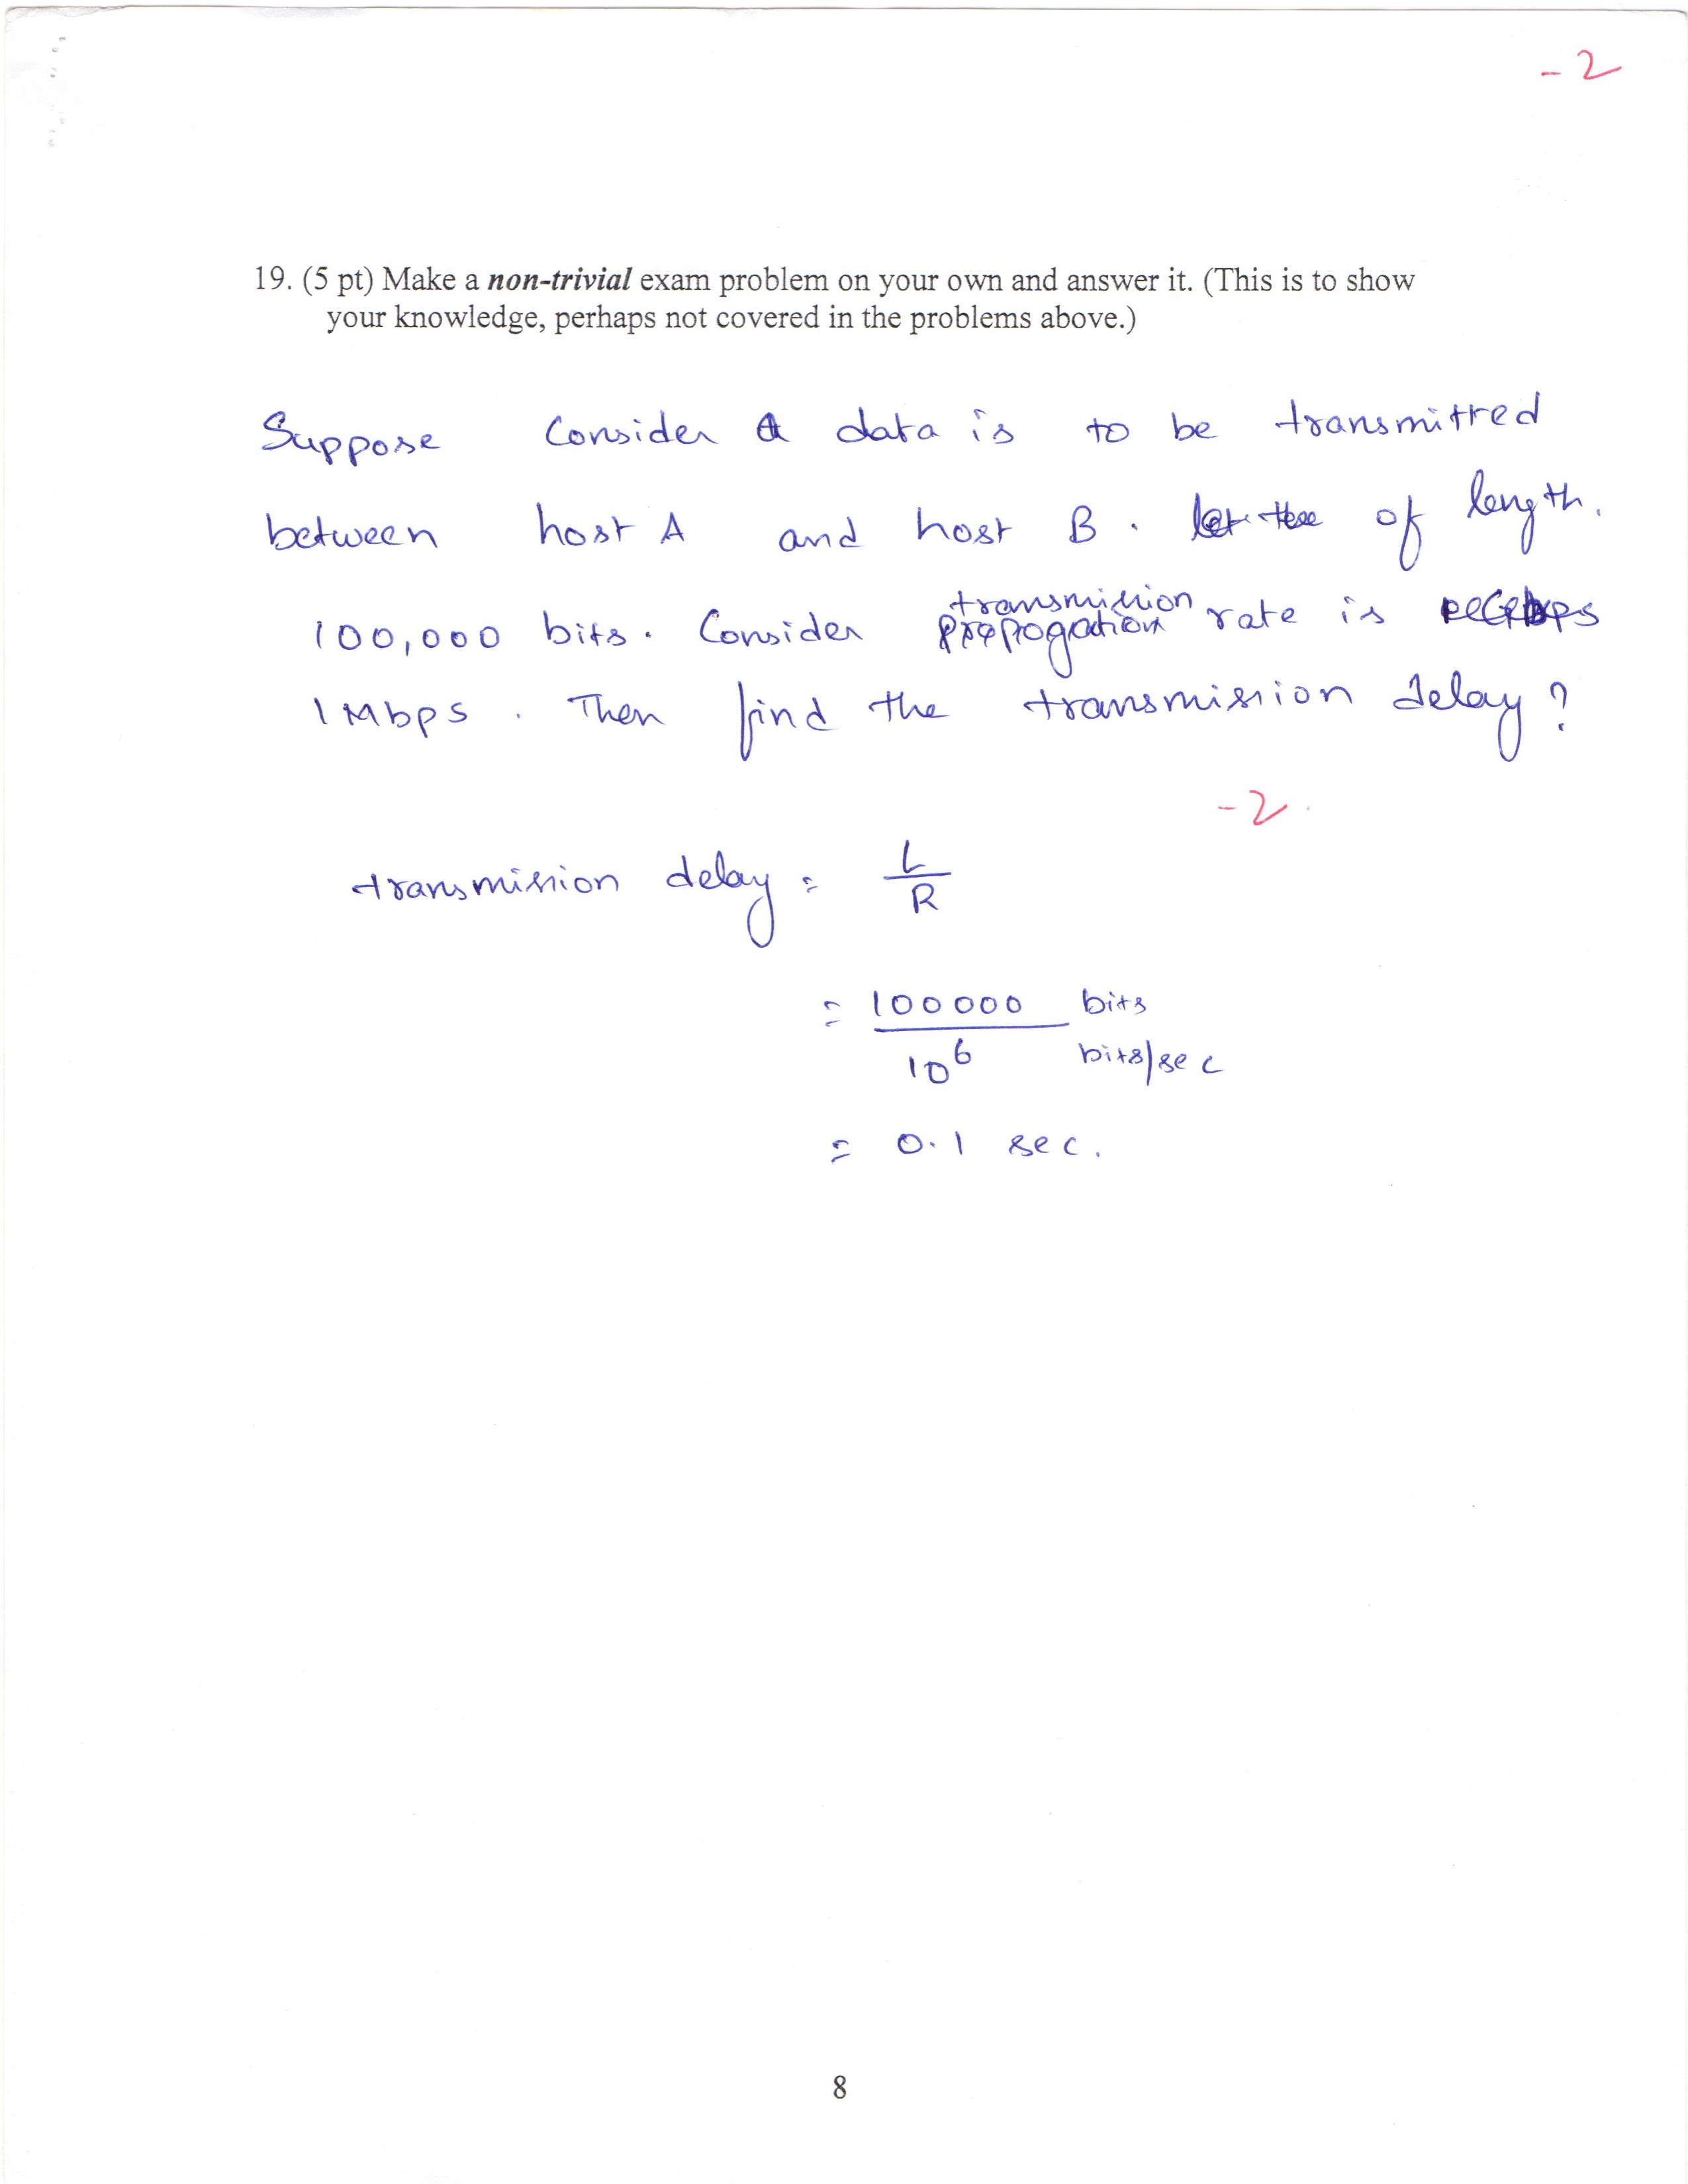 - 2
19. (5 pt) Make a non-trivial exam problem on your own and answer it. (This is to show
your knowledge, perhaps not covered in the problems above.)
Suppose Consider a data is to be transmitted
between host A and host B. let the of length.
transmission
100,000 bits. Consider propogation rate is
1 Mbps. Then find the transmission delay?
- 2.
transmission delay = L
R
= 100000 bits
10^6 bits/sec
= 0.1 sec.
8